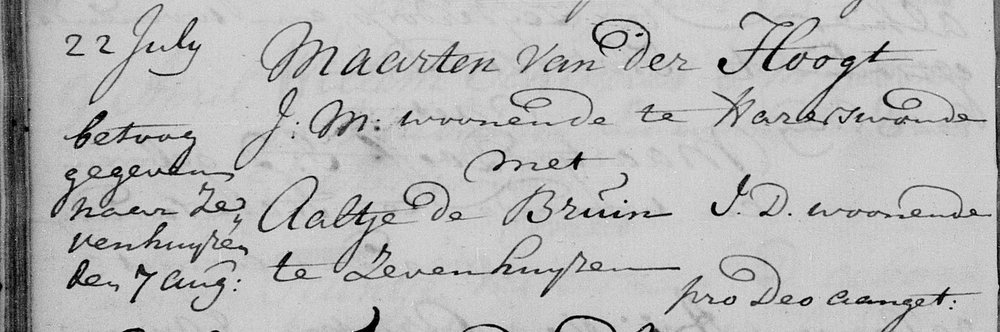 22 July
betoog
gegeven
naar Ze„
venhuyzen
den 7 aug:
Maarten van der Hoogt
J: M: woonende te Hazerswoude
met
Aaltje de Bruin J. D. woonende
te Zevenhuyzen
pro Deo aanget: